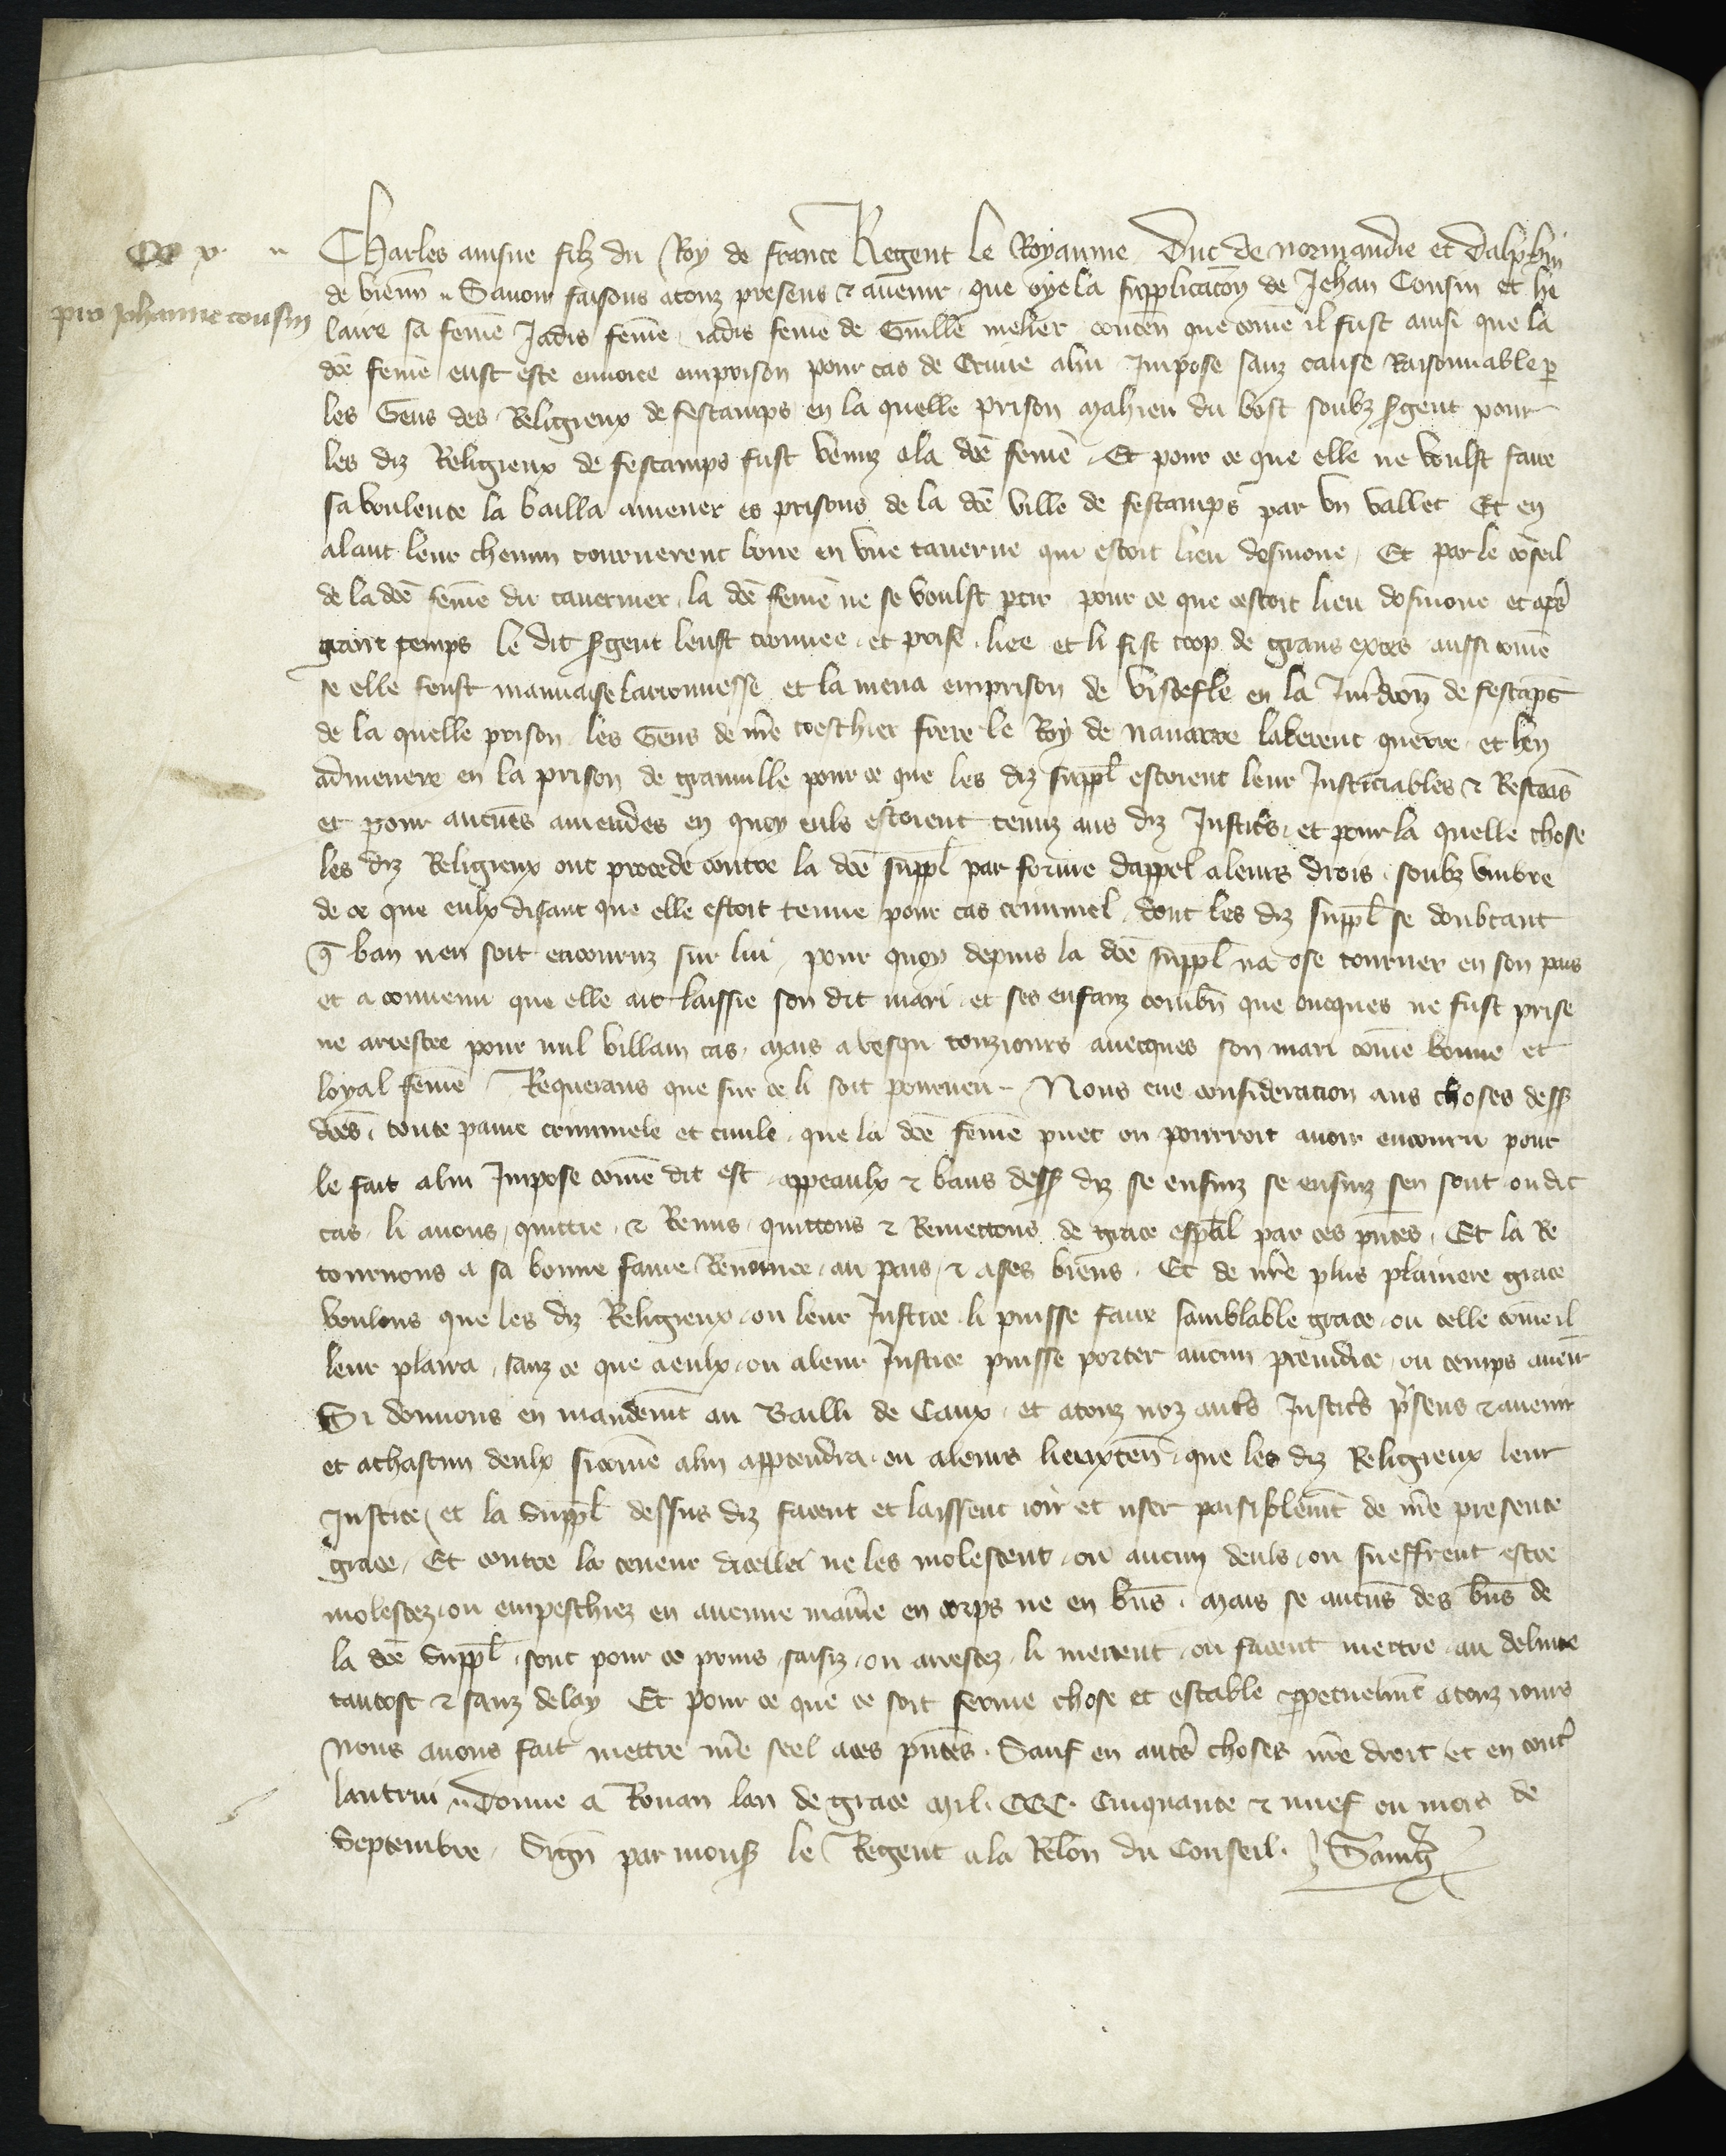 CC x.
pro Johanne cousin
Charles ainsne filz du Roy de france Regent le Royaume Duc de normandie et Dalphin
de vienn~ Savoir faisons atouz presens & avenir que oye la supplicacon de Jehan Cousin et he
laire sa feme Jadis feme jadis feme de Guille melier conten~ que come il fust ainsi que la
dce feme eust este envoiee emprison pour cas de Crime alui Impose sanz cause Raisonnable p
les Gens des Religieux de fescamps en la quelle prison Mahieu du bost soubz sgent pour
les diz Religieux de fescamps fust venuz ala dce feme Et pour ce que elle ne voulst faire
sa voulente la bailla amener es prisons de la dce ville de fescamps par un vallet Et en
alant leur chemin tournerent boire en une taverne qui estoit lieu dosmone Et par le conseil
de la dce feme du tavernier la dce feme ne se voulst ptir pour ce que cestoit lieu dosmone et apres
grant temps le dit sgent leust trouvee et prise liee et li fist trop de grans exces aussi come
se elle feust mauvaise larronnesse et la mena emprison de vistefle en la Jurdicon de fescaps
de la quelle prison les Gens de mre
frere le Roy de navarre lalerent querre et len
admenere en la prison de granville pour ce que les diz suppl estoient leur Justiciables & Resseas
et pour aucunes amendes en quoy eulx estoient tenuz aus diz Justices et pour la quelle chose
les diz Religieux ont procede contre la dce suppl par forme dappel aleurs drois soubz umbre
de ce que eulx disant que elle estoit tenue pour cas criminel dont les diz suppl se doubtant
q ban nen soit encouruz sur lui pour quoy depuis la dce suppl na ose tourner en son pais
et a convenu que elle ait laissie son dit mari et ses enfanz combn que oncques ne fust prise
ne arrestee pour nul villain cas mais a vesqu touziours avecques son mari come bonne et
loyal feme Requerans que sur ce li soit pourveu Nous eue consideracion aus choses dess
dces toute paine criminele et civile que la dce feme puet ou pourroit avoir encouru pour
le fait alui Impose come dit est appeaulx & bans dess diz se ensuiz se ensuiz sen sont ou dit
cas li avons quittie & Remis quittons & Remettons de grace espal par ces pntes Et la Re
tournons a sa bonne fame Renomee au pais & ases biens Et de nre plus plainiere grace
voulons que les diz Religieux ou leur Justice li puisse faire samblable grace ou telle come il
leur plaira sanz ce que aeulx ou aleur Justice puisse porter aucun preiudice ou temps avenir
Si donnons en mandemt au Bailli de Caux et atouz noz autrs Justices presens & avenir
et achascun deulx sicome alui appartendra ou aleurs lieuxten~ que les diz Religieux leur
Justice et la Suppl dessus diz facent et laissent joir et user paisiblemt de nre presente
grace Et contre la teneur dicelle ne les molestent ou aucun deuls ou sueffrent estre
molestez ou empeschiez en aucune maniere en corps ne en bns mais se aucuns des bns de
la dce Suppl sont pour ce prins saisiz ou arrestez li metent ou facent mettre au delivre
tantost & sanz delay Et pour ce que ce soit ferme chose et estable ppetuelmt atouz jours
Nous avons fait mettre nre seel aces pntes Sauf en autrs choses nre droit et en toutes
lautrui Donne a Rouan lan de grace Mil CCC Cinquante & nuef ou mois de
Septembre Sign~ par monss le Regent ala Relon du Conseil